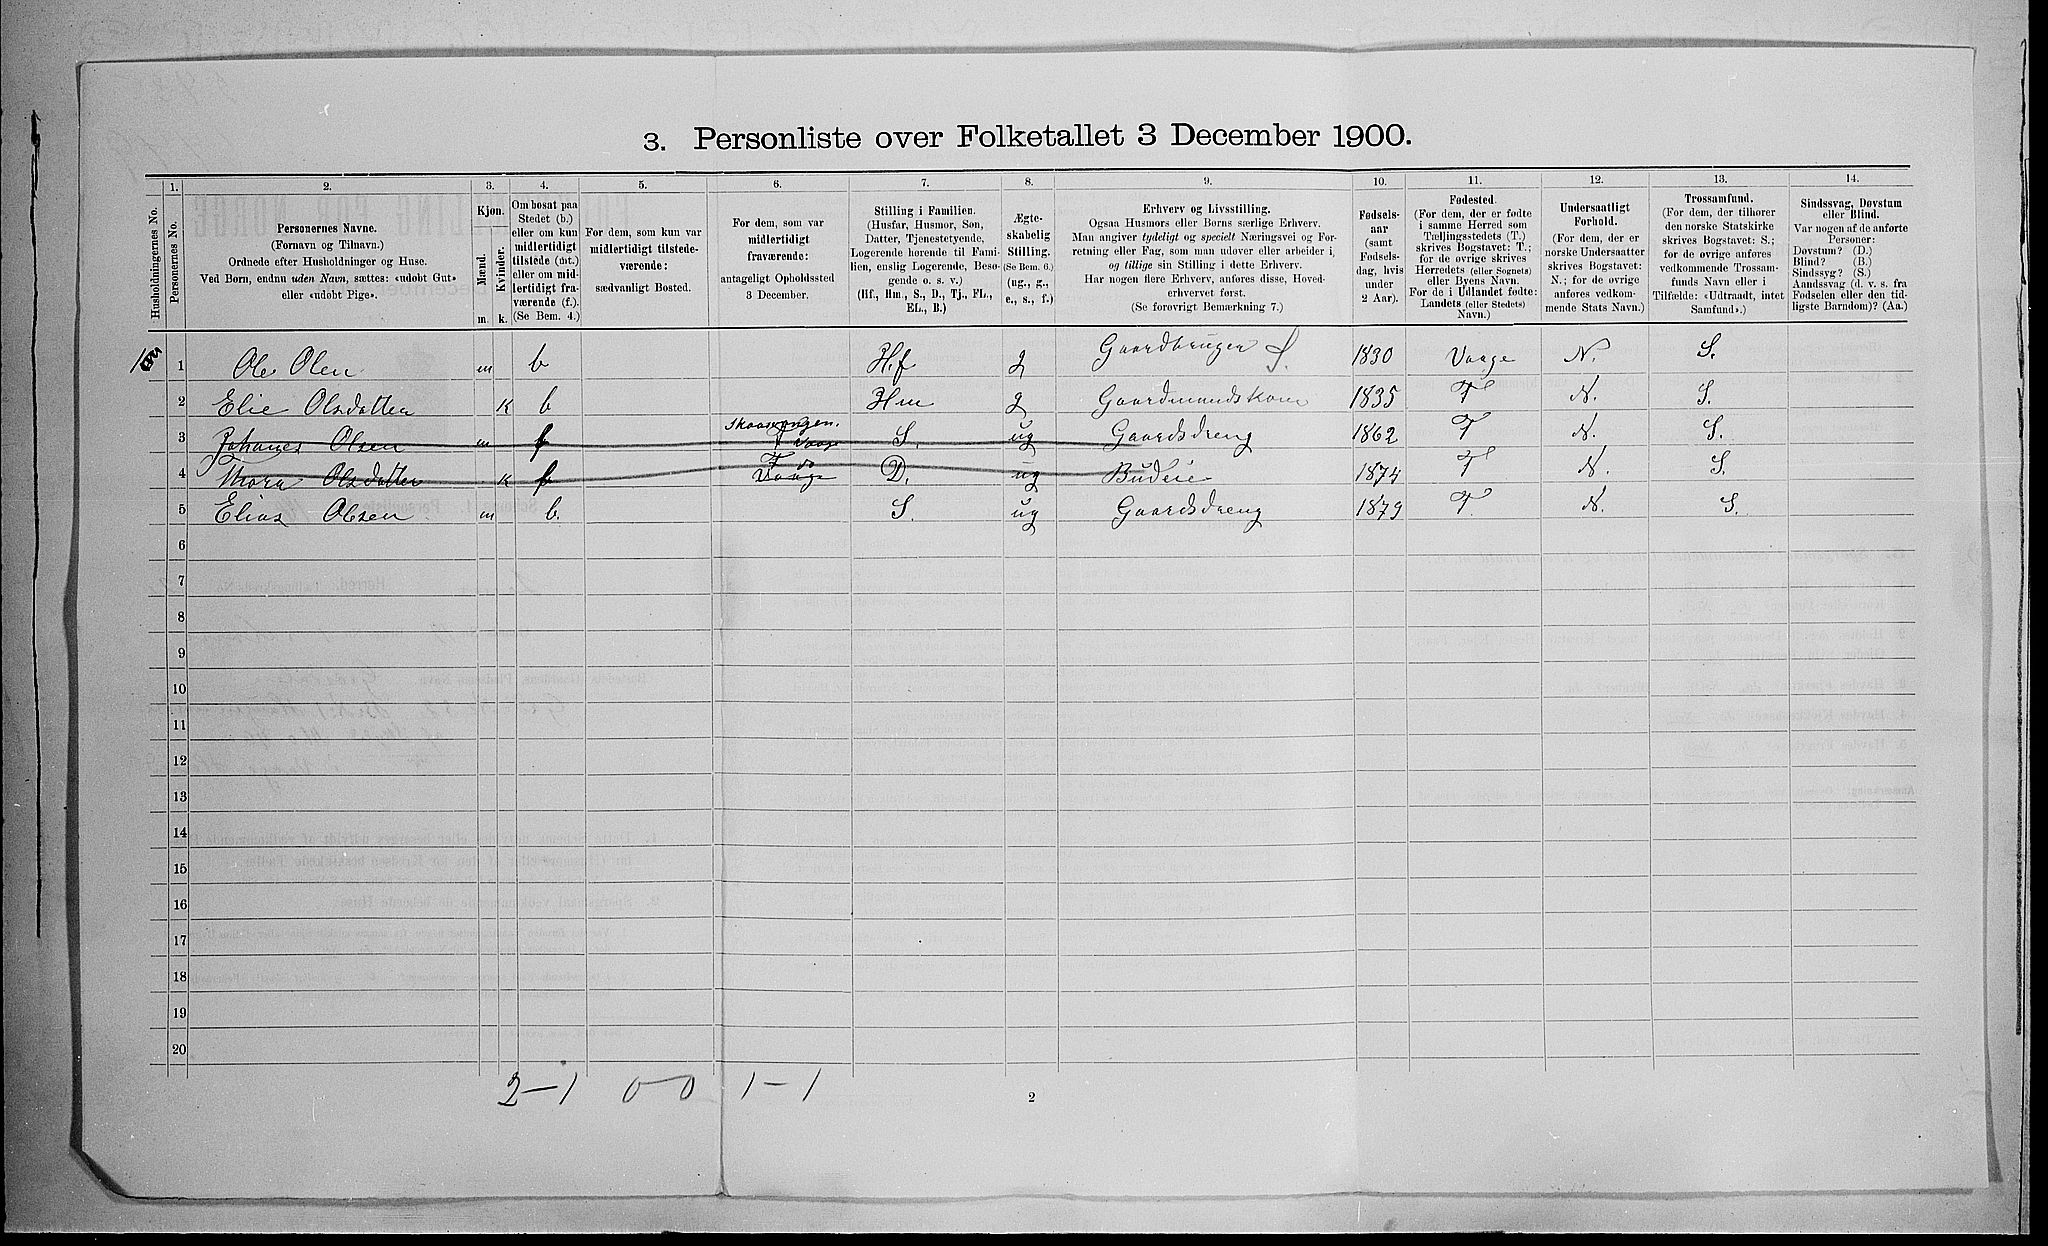 3. Personliste over Folketallet 3 December 1900.
1. 2. 3. 4. 5. 6. 7. 8. 9. 10. 11. 12. 13. 14.
Husholdningernes No.
Personernes No.
Personernes Navne.
(Fornavn og Tilnavn.)
Ordnede efter Husholdninger og Huse.
Ved Børn, endnu uden Navn, sættes: «udøbt Gut»
eller «udøbt Pige».
Kjøn.
Mænd.
Kvinder.
m. k.
Om bosat paa
Stedet (b.)
eller om kun
midlertidigt
tilstede (mt.)
eller om mid-
lertidigt fra-
værende (f.).
(Se Bem. 4.)
For dem, som kun var
midlertidigt tilstede-
værende:
sædvanligt Bosted.
For dem, som var
midlertidigt
fraværende:
antageligt Opholdssted
3 December.
Stilling i Familien.
(Husfar, Husmor, Søn,
Datter, Tjenestetyende,
Logerende hørende til Fami-
lien, enslig Logerende, Besø-
gende o. s. v.)
(Hf., Hm., S., D., Tj., FL.,
EL., B.)
Ægte-
skabelig
Stilling.
(Se Bem. 6.)
(ug., g.,
e., s., f.)
Erhverv og Livsstilling.
Ogsaa Husmors eller Børns særlige Erhverv.
Man angiver tydeligt og specielt Næringsvei og For-
retning eller Fag, som man udøver eller arbeider i,
og tillige sin Stilling i dette Erhverv.
Har nogen flere Erhverv, anføres disse, Hoved-
erhvervet først.
(Se forøvrigt Bemærkning 7.)
Fødsels-
aar
(samt
Fødsels-
dag, hvis
under
2 Aar).
Fødested.
(For dem, der er fødte
i samme Herred som
Tællingsstedets (T.)
skrives Bogstavet: T.;
for de øvrige skrives
Herredets (eller Sognets)
eller Byens Navn.
For de i Udlandet fødte:
Landets (eller Stedets)
Navn.)
Undersaatligt
Forhold.
(For dem, der er
norske Undersaatter
skrives Bogstavet:
N.; for de øvrige
anføres vedkom-
mende Stats Navn.)
Trossamfund.
(For dem, der tilhører
den norske Statskirke
skrives Bogstavet: S.;
for de øvrige anføres
vedkommende Trossam-
funds Navn eller i
Tilfælde: «Udtraadt, intet
Samfund».)
Sindssvag, Døvstum
eller Blind.
Var nogen af de anførte
Personer:
Døvstum? (D.)
Blind? (B.)
Sindssyg? (S.)
Aandssvag (d. v. s. fra
Fødselen eller den tid-
ligste Barndom)? (Aa.)
1 Ole Olen m b Hf g Gaardbruger S. 1830 Vaage N. S.
2 Elie Olsdatter K b Hm g Gaardmandskone 1835 T N. S.
3 Johanes Olsen m f Vaage S. ug Gaardsdreng 1862 T N. S.
4 Thora Olsdatter K f T do Vaage D. ug Budeie 1874 T N. S.
5 Elias Olsen m b. S. ug Gaardsdreng 1879 T. N. S.
6
7
8
9
10
11
12
13
14
15
16
17
18
19
20
2-1 0-0 1-1
2